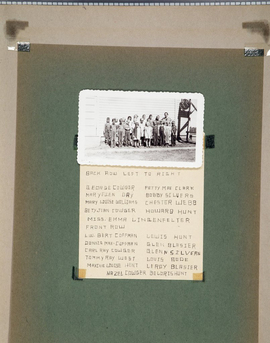 BACK ROW LEFT TO RIGHT
GEORGE COWGER PATTY MAE CLARK
MARY JANE DAY BOBBY
MARY LOUISE WILLIAMS CHESTER WEBB
BETTY JEAN COWGER HOWARD HUNT
MISS EMMA LINGENFELTER
FRONT ROW
BERT COFFMAN LEWIS HUNT
BONNIE MAE COFFMAN GLEN BLASIER
CARL RAY COWGER GLENN SILVERS
TOMMY RAY WEST LOUIS
MARTHA LOUISE HUNT LEROY BLASIER
HAZEL COWGER DELORIS HUNT